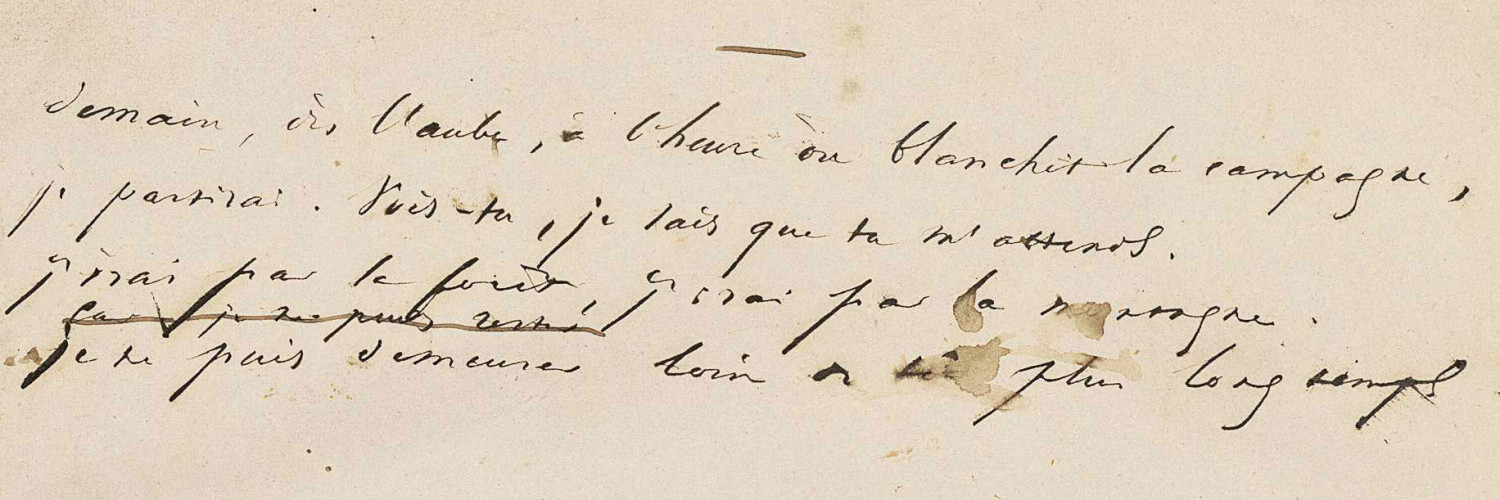 demain, dès l'aube, à l'heure où blanchit la campagne,
je partirai. Vois-tu, je sais que tu m'attends.
j'irai par la forêt, j'irai par la montagne.
car je ne puis rester
je ne puis demeurer loin de toi plus longtemps